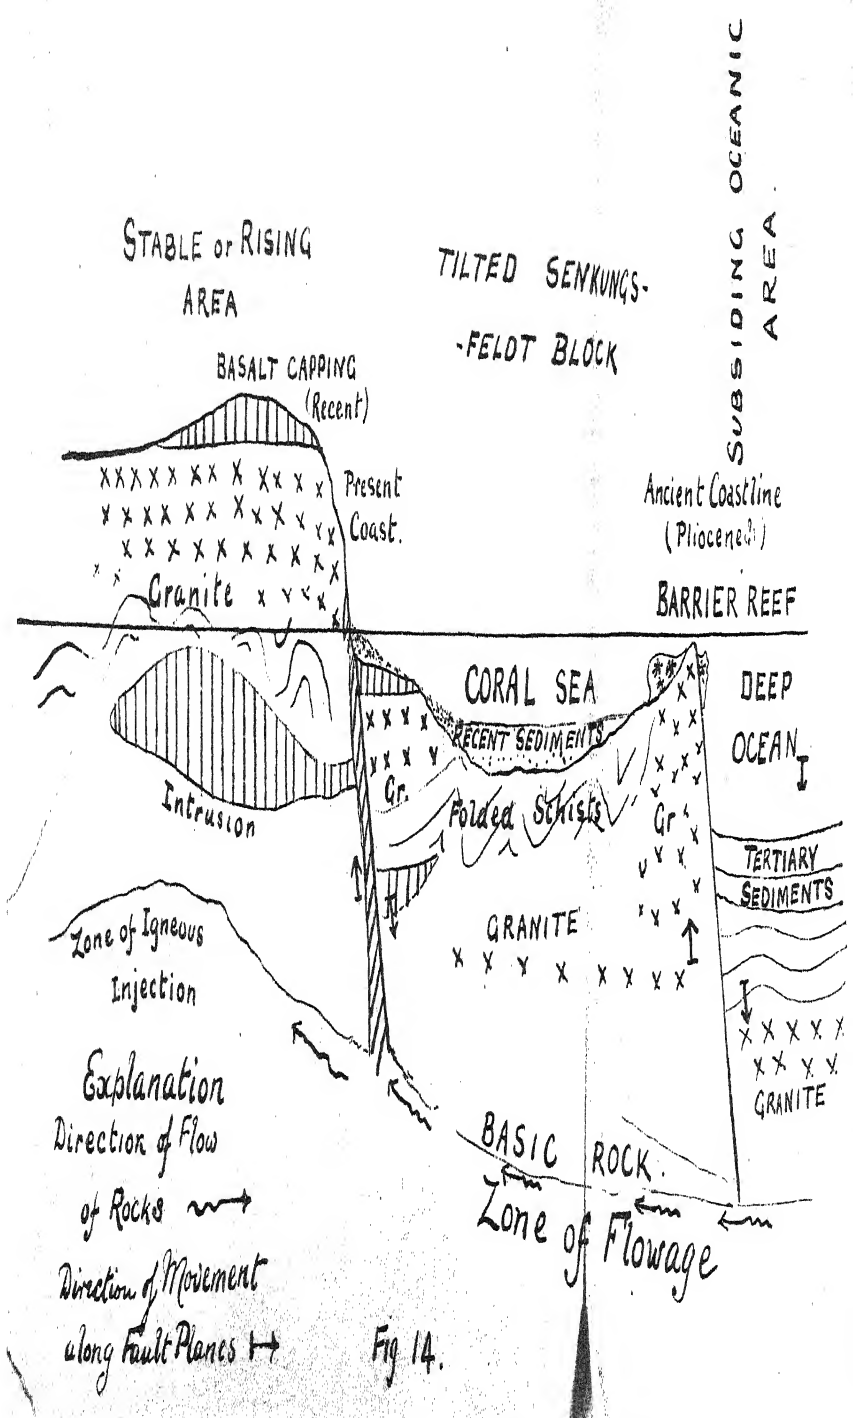 STABLE or RISING
AREA
TILTED SENKUNGS-
-FELDT BLOCK
SUBSIDING OCEANIC
AREA.
BASALT CAPPING
(Recent)
Present
Coast.
Ancient Coastline
(Pliocene)
Granite
BARRIER REEF
CORAL SEA
DEEP
OCEAN
RECENT SEDIMENTS
Gr.
Intrusion
Folded Schists
Gr
TERTIARY
SEDIMENTS
GRANITE
Zone of Igneous
Injection
GRANITE
Explanation
Direction of Flow
of Rocks
BASIC ROCK.
Zone of Flowage
Direction of Movement
along Fault Planes
Fig 14.